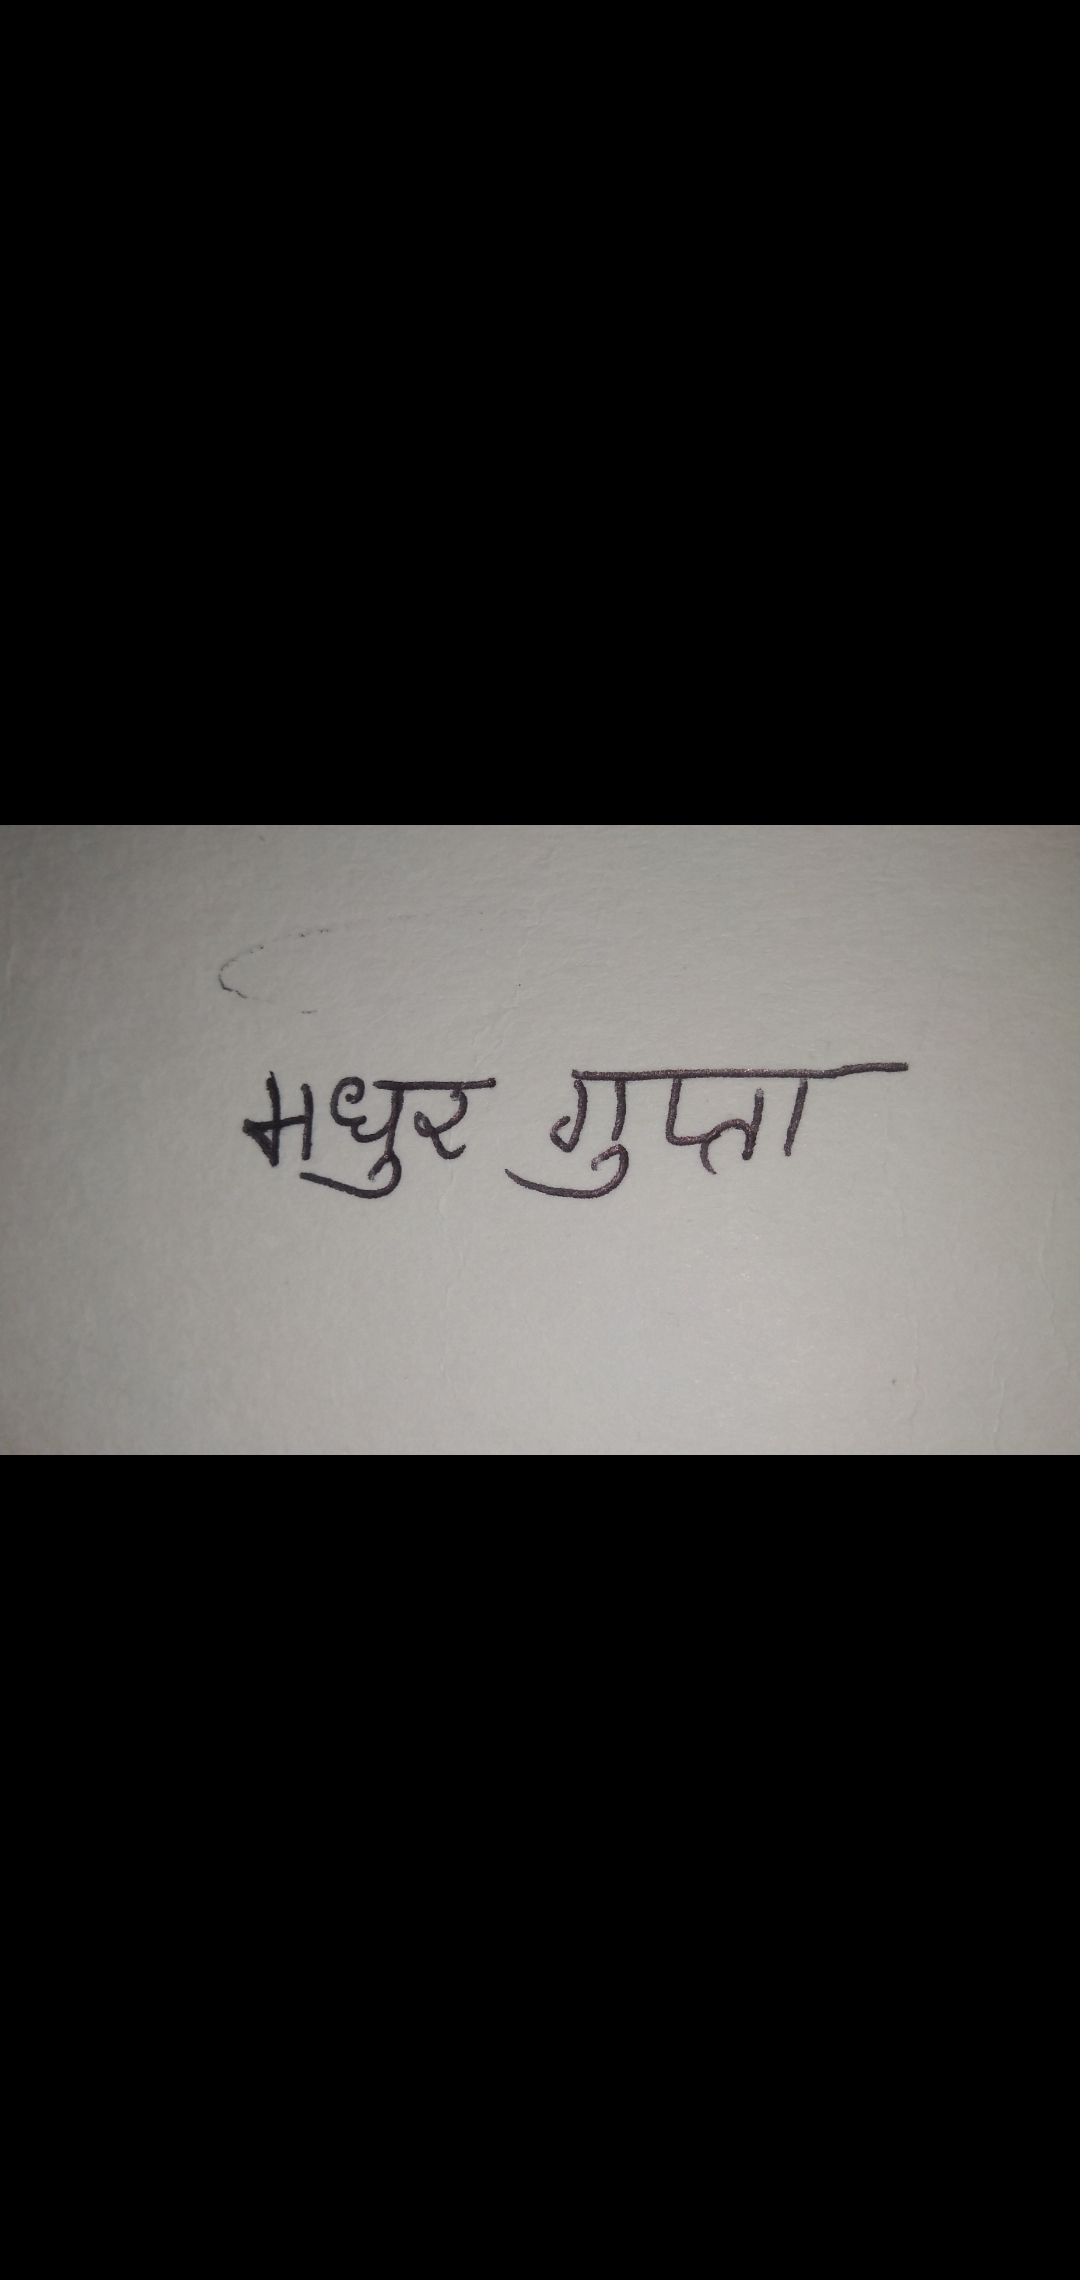 मधुर गुप्ता